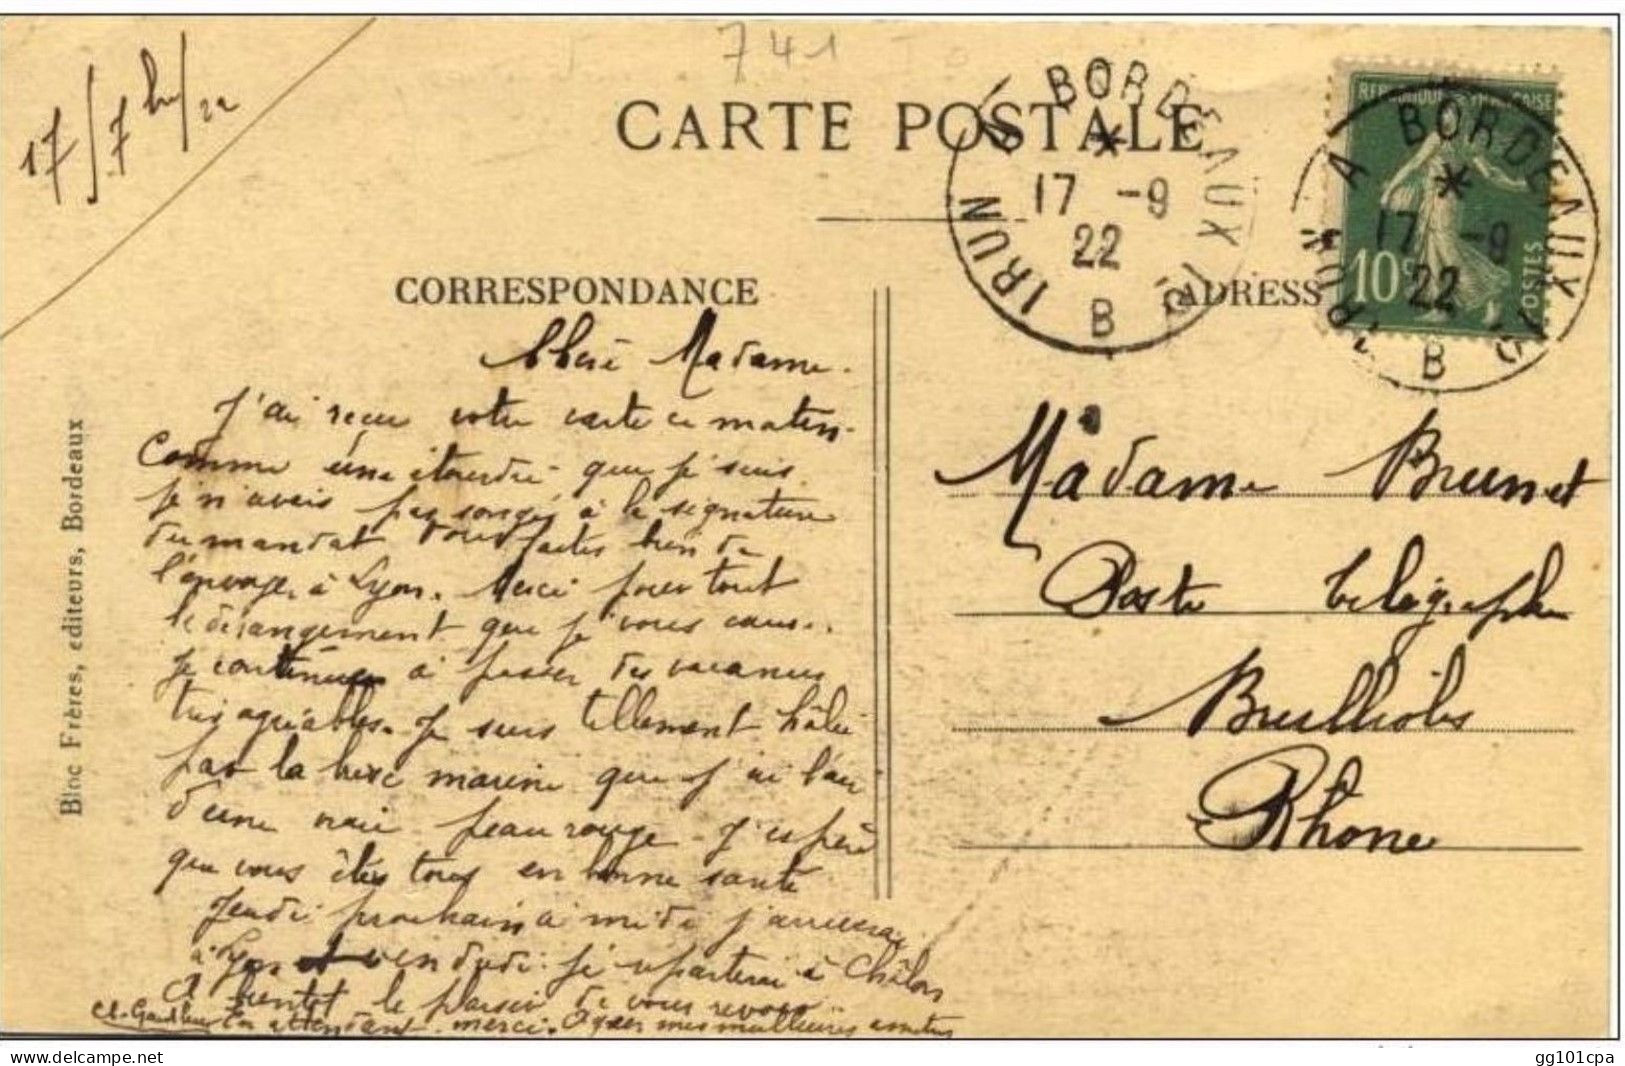 741
17/7bre/22
CARTE POSTALE
IRUN A BORDEAUX
17 -9
22
B
REPUBLIQUE FRANÇAISE
10c
POSTES
IRUN A BORDEAUX
17 -9
22
B
CORRESPONDANCE
ADRESSE
Chère Madame.
J'ai reçu votre carte ce matin.
Comme une étourdie que je suis
je n'avais pas songé à la signature
du mandat. Vous faites bien de
l'envoyer à Lyon. Merci pour tout
le dérangement que je vous cause.
Je continue à passer des vacances
très agréables. Je suis tellement hâlée
par la brise marine que j'ai l'air
d'une vraie peau rouge. J'espère
que vous êtes tous en bonne santé
Jeudi prochain à midi j'arriverai
à Lyon et vendredi je repartirai à Châlons
A bientôt le plaisir de vous revoir.
En attendant merci. mes meilleures amitiés
Madame Brunet
Poste télégraphe
Brulliolles
Rhône
Bloc Frères, éditeurs, Bordeaux
delcampe.net
gg101cpa